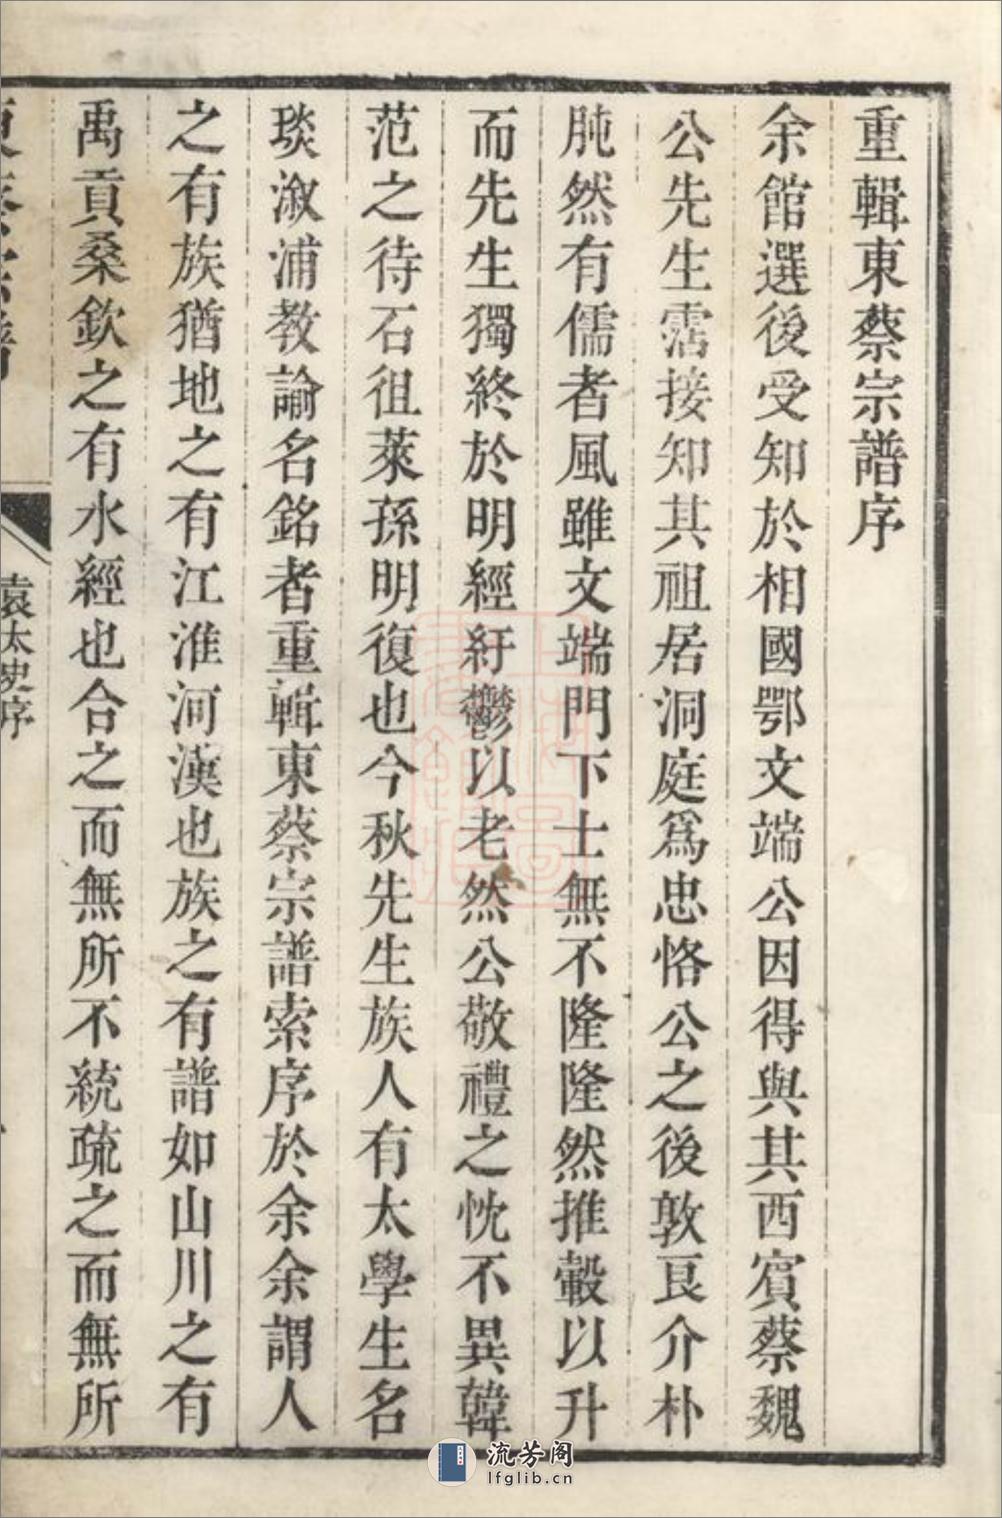 重輯東蔡宗譜序
余館選後受知於相國鄂文端公因得與其西賓蔡魏
公先生霑接知其祖居洞庭爲忠恪公之後敦良介朴
肫然有儒者風雖文端門下士無不隆隆然推轂以升
而先生獨終於明經紆鬱以老然公敬禮之忱不異韓
范之待石徂萊孫明復也今秋先生族人有太學生名
琰漵浦教諭名銘者重輯東蔡宗譜索序於余余謂人
之有族猶地之有江淮河漢也族之有譜如山川之有
禹貢桑欽之有水經也合之而無所不統疏之而無所
東蔡宗譜
袁太史序
流芳阁
lfglib.cn